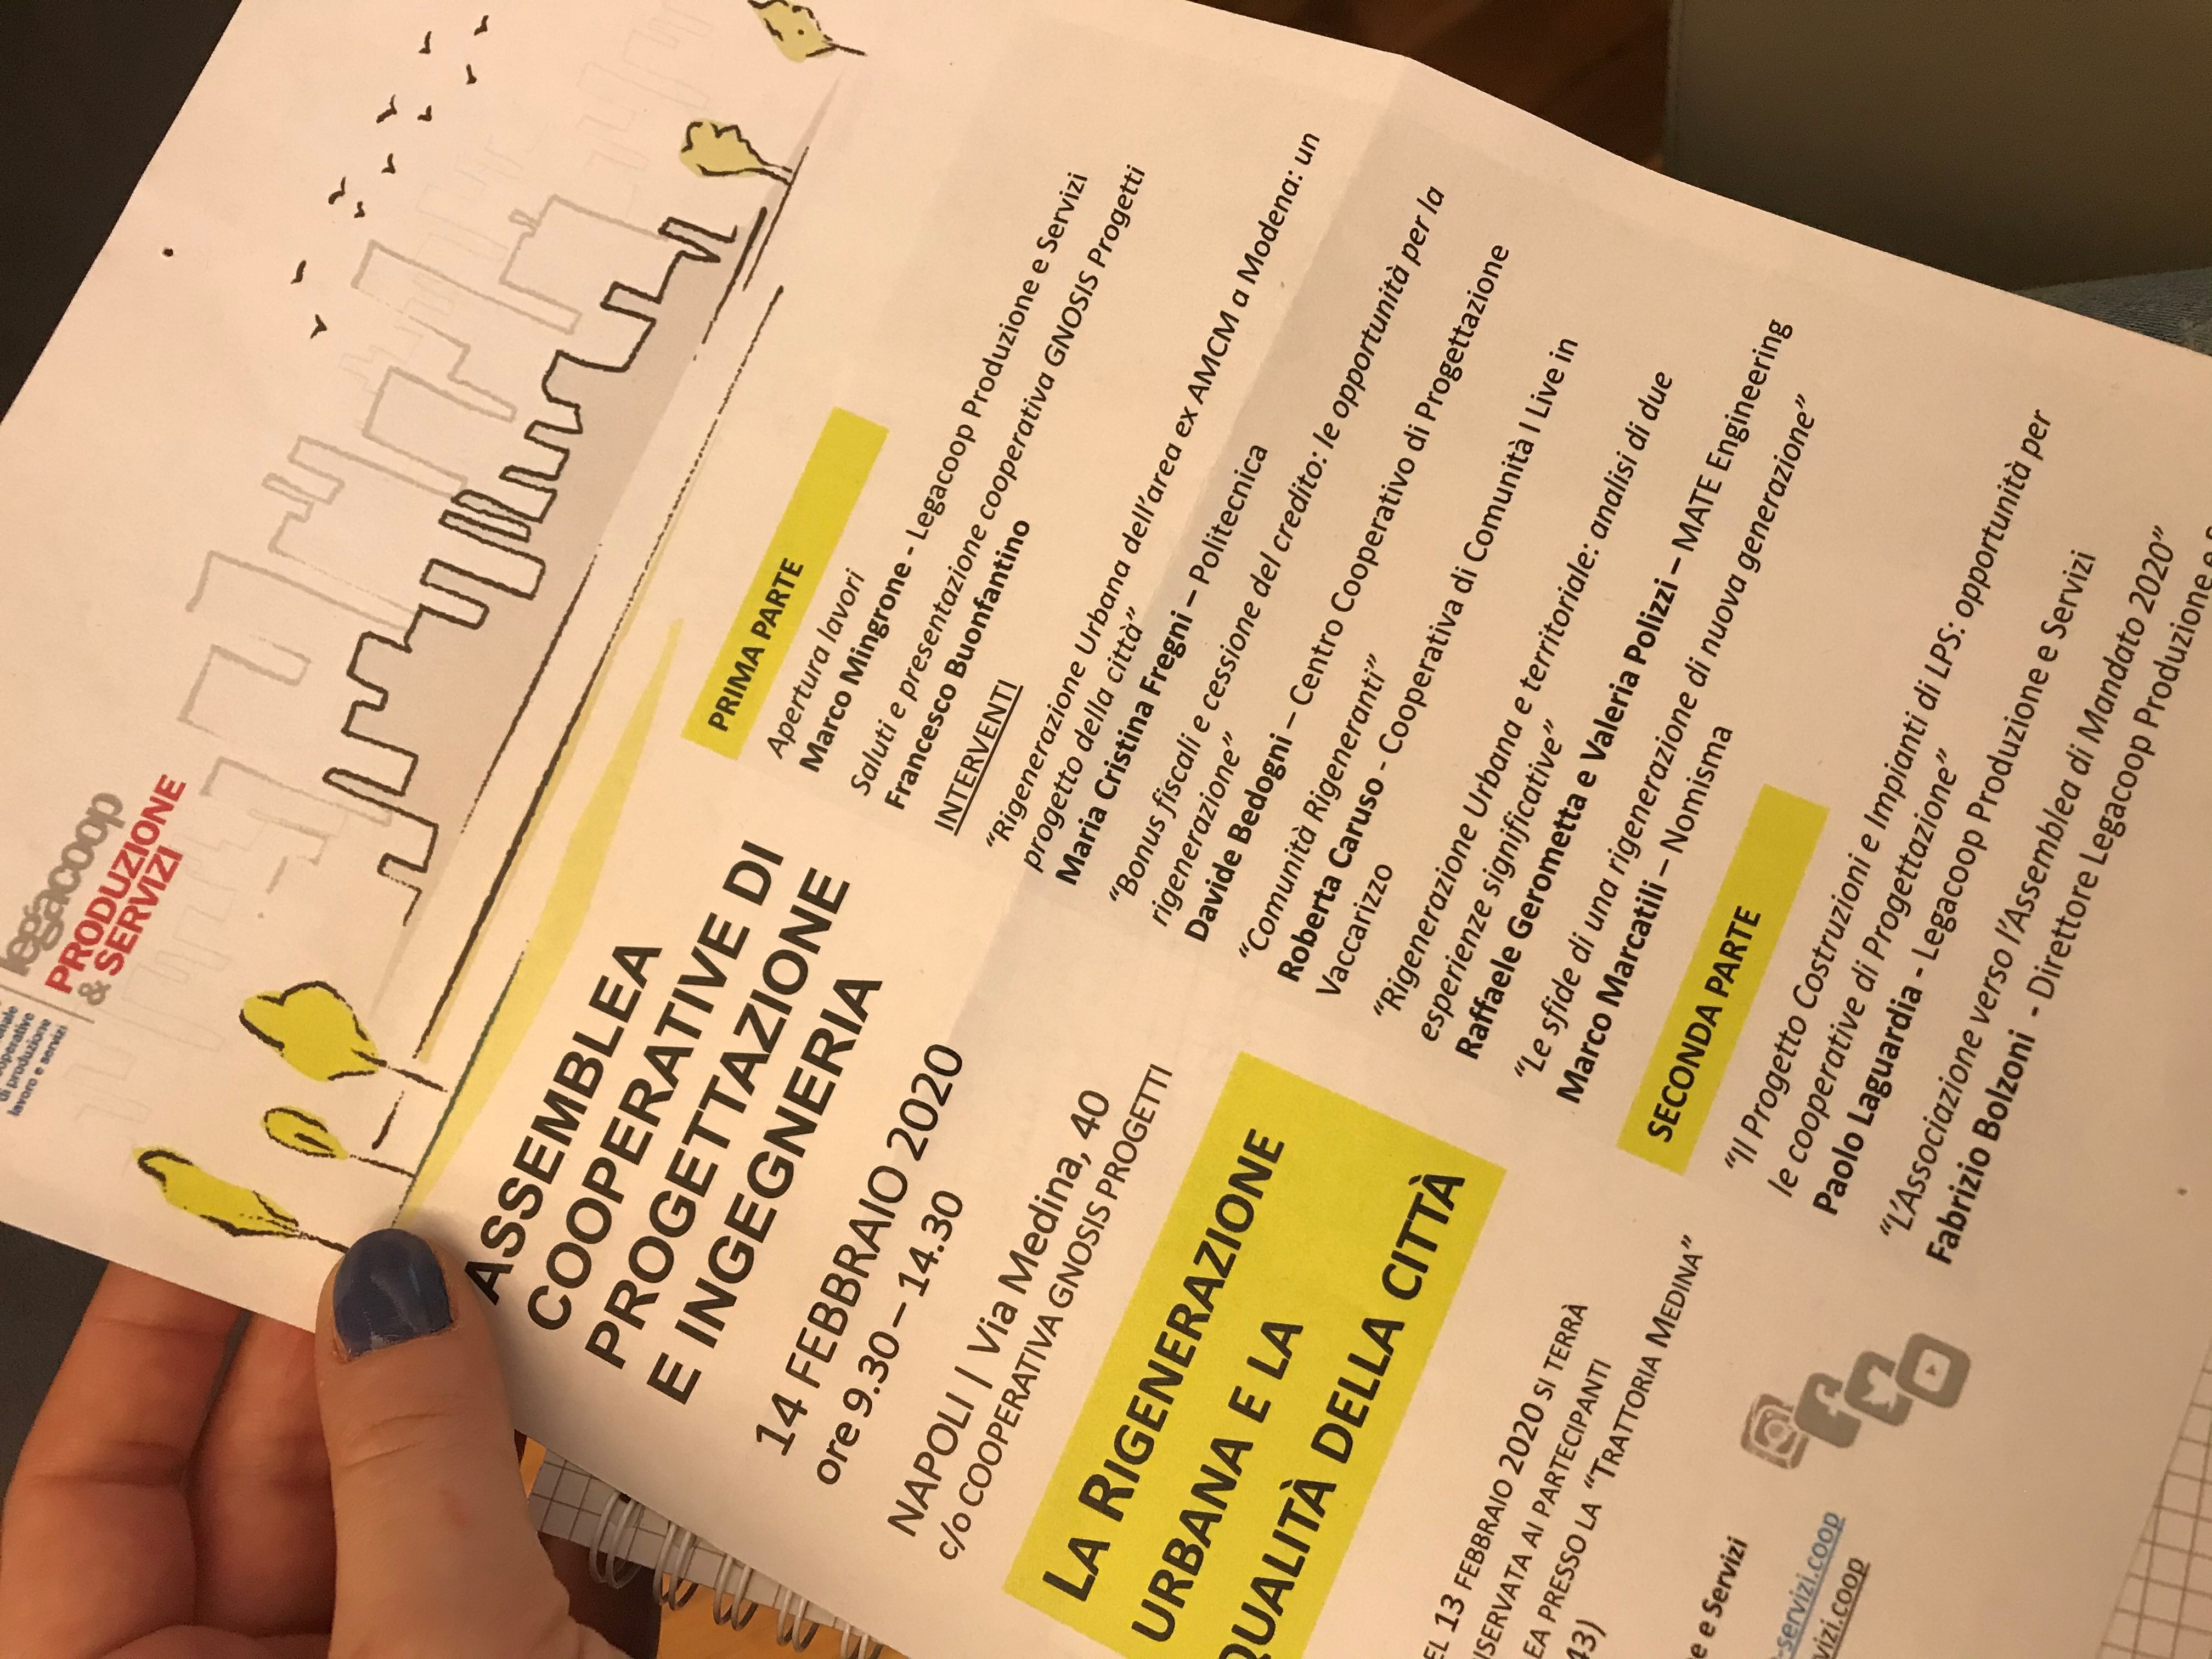 legacoop
PRODUZIONE
& SERVIZI
di produzione
lavoro e servizi
ASSEMBLEA
COOPERATIVE DI
PROGETTAZIONE
E INGEGNERIA
14 FEBBRAIO 2020
ore 9.30 – 14.30
NAPOLI | Via Medina, 40
c/o COOPERATIVA GNOSIS PROGETTI
LA RIGENERAZIONE
URBANA E LA
QUALITÀ DELLA CITTÀ
13 FEBBRAIO 2020 SI TERRÀ
AI PARTECIPANTI
PRESSO LA “TRATTORIA MEDINA”
43)
e Servizi
-servizi.coop
vizi.coop
PRIMA PARTE
Apertura lavori
Marco Mingrone - Legacoop Produzione e Servizi
Saluti e presentazione cooperativa GNOSIS Progetti
Francesco Buonfantino
INTERVENTI
“Rigenerazione Urbana dell’area ex AMCM a Modena: un
progetto della città”
Maria Cristina Fregni – Politecnica
“Bonus fiscali e cessione del credito: le opportunità per la
rigenerazione”
Davide Bedogni – Centro Cooperativo di Progettazione
“Comunità Rigeneranti”
Roberta Caruso - Cooperativa di Comunità I Live in
Vaccarizzo
“Rigenerazione Urbana e territoriale: analisi di due
esperienze significative”
Raffaele Gerometta e Valeria Polizzi – MATE Engineering
“Le sfide di una rigenerazione di nuova generazione”
Marco Marcatili – Nomisma
SECONDA PARTE
“Il Progetto Costruzioni e Impianti di LPS: opportunità per
le cooperative di Progettazione”
Paolo Laguardia - Legacoop Produzione e Servizi
“L’Associazione verso l’Assemblea di Mandato 2020”
Fabrizio Bolzoni - Direttore Legacoop Produzione e